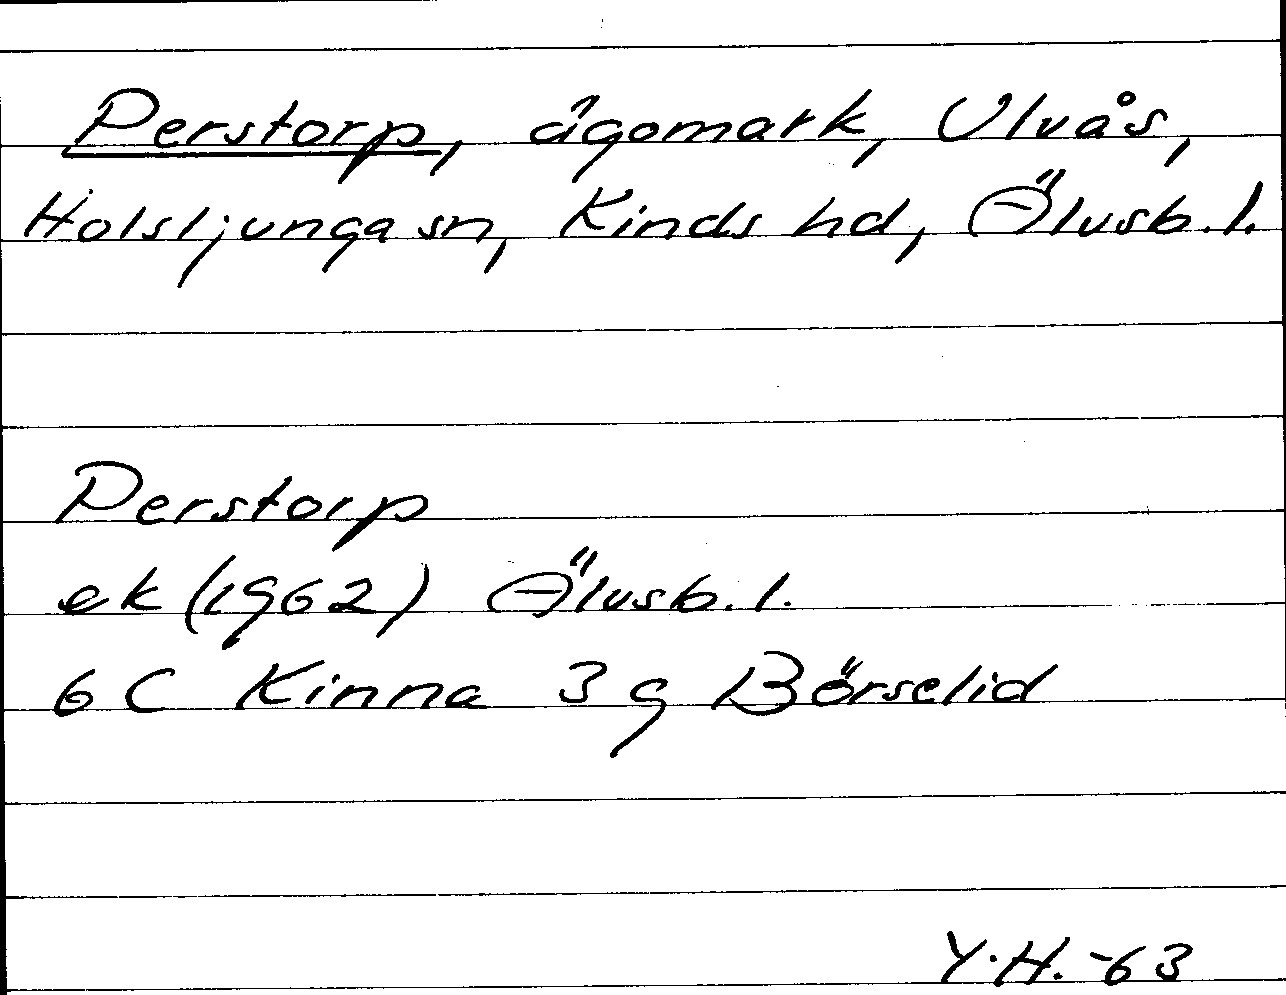 Perstorp, ägomark, Ulvås,
Holsljunga sn, Kinds hd, Älvsb. l.
Perstorp
ek (1962) Älvsb. l.
6 C Kinna 3 g Börselid
Y.H. -63